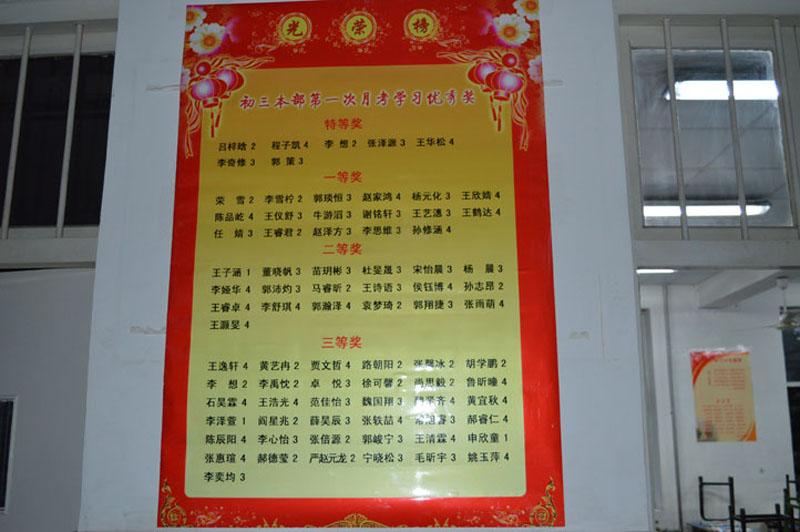 光荣榜
初三本部第一次月考学习优秀奖
特等奖
吕梓晗 2 程子凯 4 李想 2 张泽源 3 王华松 4
李奇修 3 郭策 3
一等奖
荣雪 2 李雪柠 2 郭琰恒 3 赵家鸿 4 杨元化 3 王欣婧 4
陈品屹 4 王仪舒 3 牛游滔 3 谢铭轩 3 王艺潓 3 王鹤达 4
任婧 3 王睿君 2 赵泽方 3 李思维 3 孙修涵 4
二等奖
王子涵 1 董晓帆 3 苗玥彬 3 杜旻晟 3 宋怡晨 3 杨晨 3
李娅华 4 郭沛灼 3 马睿昕 2 王诗语 3 侯钰博 4 孙志昂 2
王睿卓 4 李舒琪 4 郭瀚泽 4 袁梦琦 2 郭翔捷 3 张雨萌 4
王灏旻 4
三等奖
王逸轩 4 黄艺冉 2 贾文哲 4 路朝阳 2 张馨冰 2 胡学鹏 2
李想 2 李禹忱 2 卓悦 3 徐可馨 2 尚思毅 2 鲁昕曈 4
石昊霖 4 王浩光 4 范佳怡 3 魏国翔 3 齐 4 黄宜秋 4
李泽萱 1 阎星兆 2 薛昊辰 3 张轶喆 4 常旭睿 3 郝睿仁 4
陈辰阳 4 李心怡 3 张倍源 2 郭峻宁 3 王清霖 4 申欣童 1
张惠瑄 4 郝德莹 2 严赵元龙 2 宁晓松 3 毛昕宇 3 姚玉萍 4
李奕均 3